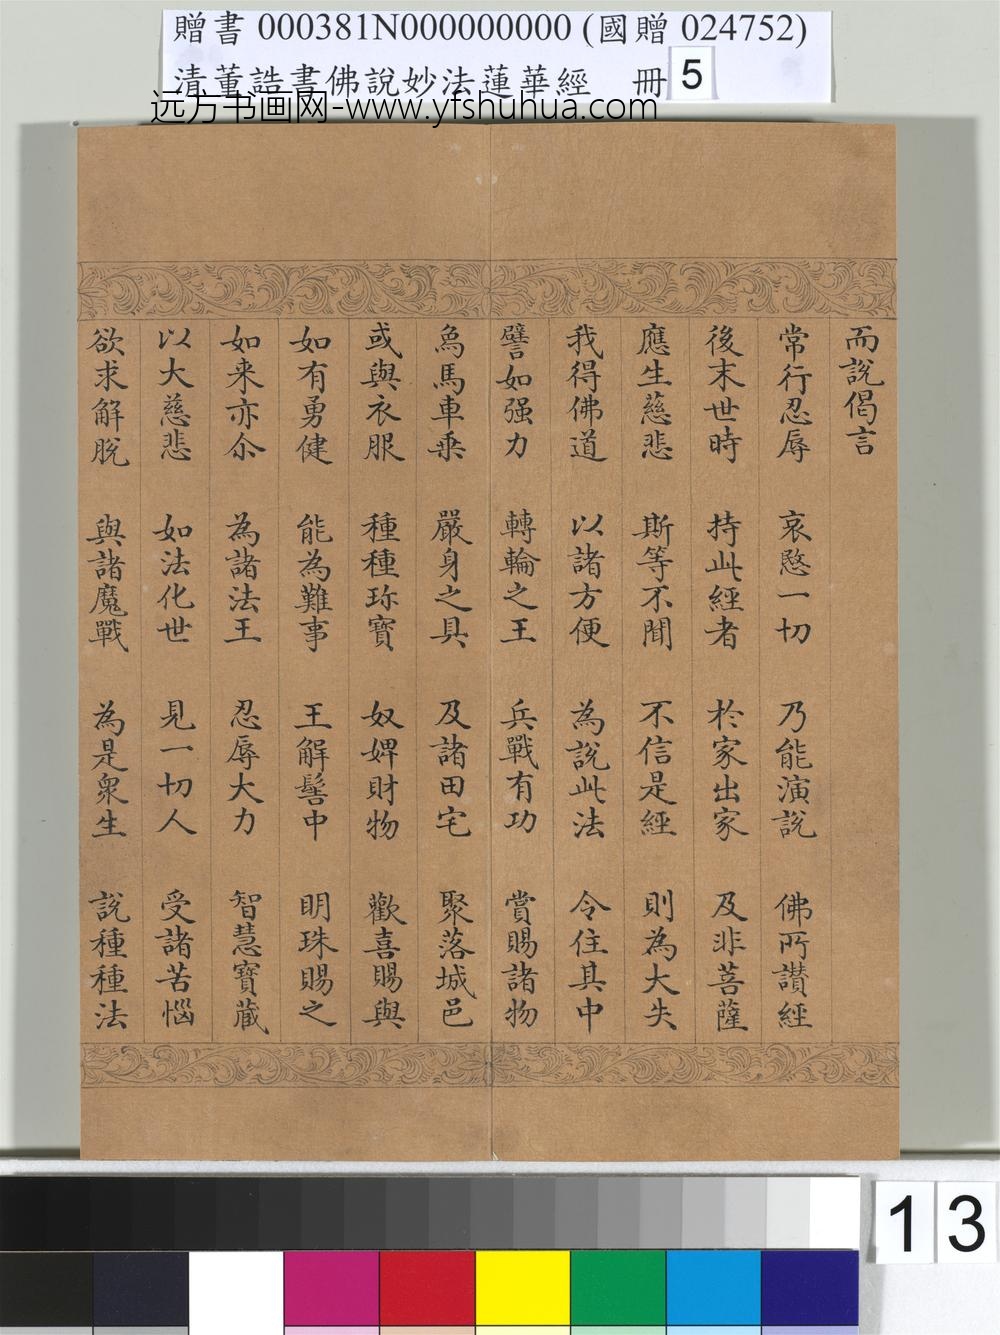 贈書 000381N000000000 (國贈 024752)
清董誥書佛說妙法蓮華經 冊 5
远方书画网-www.yfshuhua.com
而說偈言
常行忍辱 哀愍一切 乃能演說 佛所讃經
後末世時 持此經者 於家出家 及非菩薩
應生慈悲 斯等不聞 不信是經 則為大失
我得佛道 以諸方便 為說此法 令住其中
譬如强力 轉輪之王 兵戰有功 賞賜諸物
象馬車乗 嚴身之具 及諸田宅 聚落城邑
或與衣服 種種珎寶 奴婢財物 歡喜賜與
如有勇健 能為難事 王解髻中 明珠賜之
如来亦尒 為諸法王 忍辱大力 智慧寶蔵
以大慈悲 如法化世 見一切人 受諸苦惱
欲求解脫 與諸魔戰 為是衆生 說種種法
13